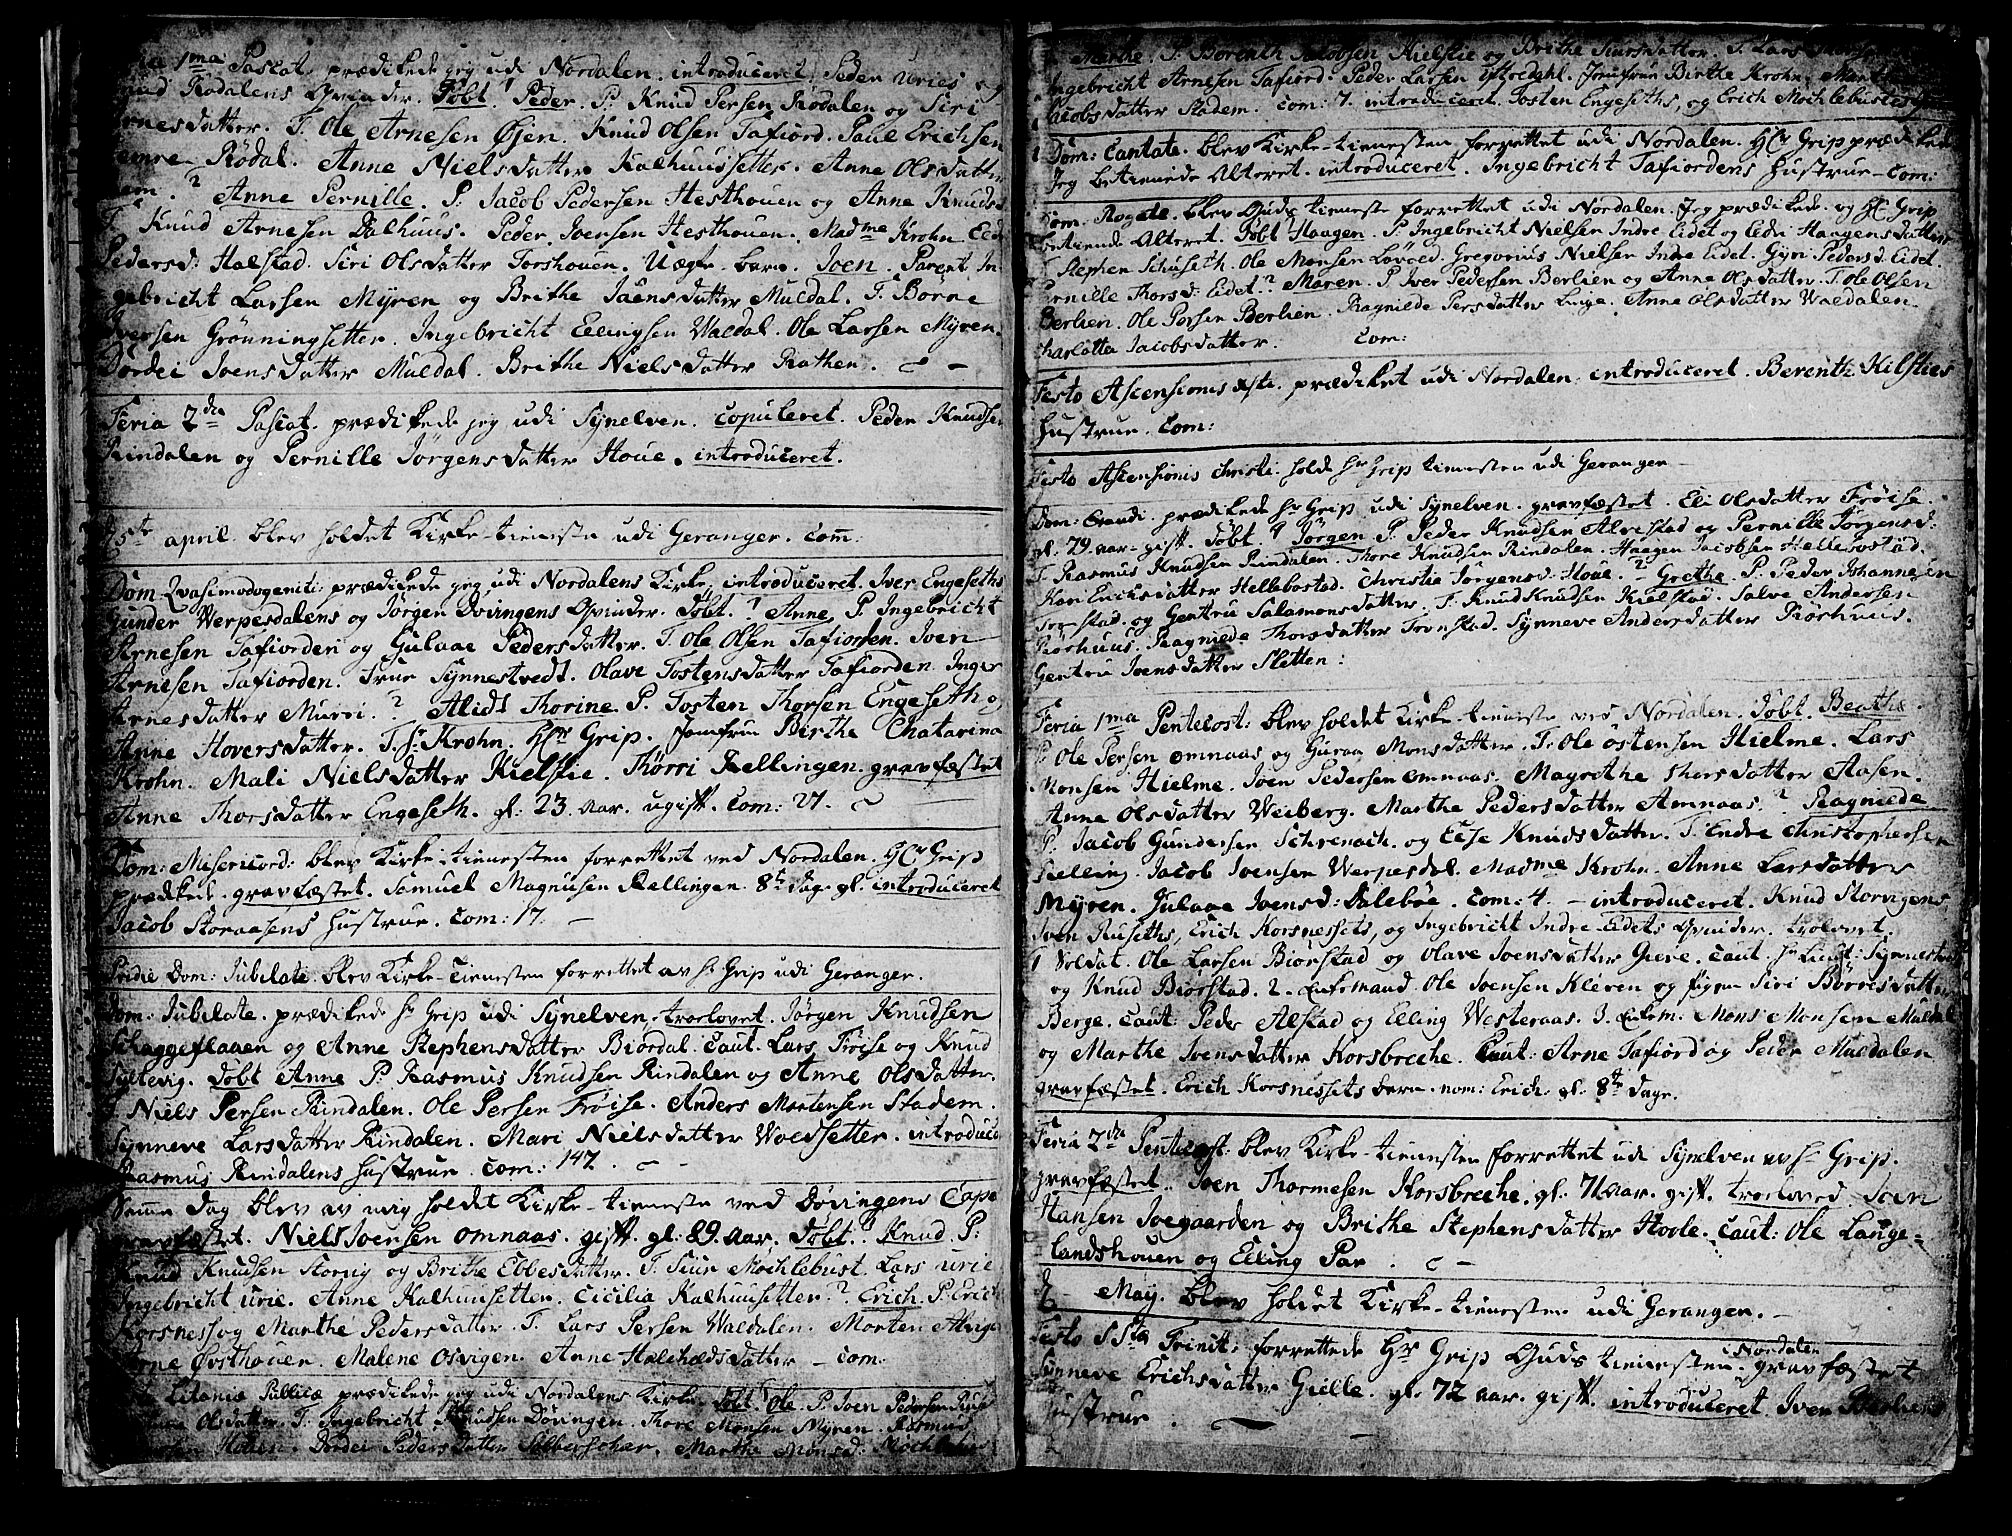 1ma Pascat. prædikede jeg udi Nordalen. introduceret Peder Uries og
Knud Rødalens Qvinder. Døbt 1 Peder. P. Knud Persen Rødalen og Siri
Arnesdatter. T. Ole Arnesen Øjen. Knud Olsen Tafiord. Paul Erichsen
Rødal. Anne Nielsdatter Kalhuussetter. Anne Olsdatter
2 Anne Pernille. P. Jacob Pedersen Hesthouen og Anne Knuds
T. Knud Arnesen Dalhuus. Peder Joensen Hesthouen. Madme Krohn.
Pedersd: Halstad. Siri Olsdatter Torshouen. Uægte barn. Joen. Parent. In
gebricht Larsen Myren og Brithe Jaensdatter Muldal. T. Børne
Iversen Grønningsetter. Ingebricht Ellingsen Waldal. Ole Larsen Myren.
Dordei Joensdatter Muldal. Brithe Nielsdatter Rathen.
Feria 2da Pascat. prædikede jeg udi Synelven. copuleret. Peder Knudsen
Rindalen og Pernille Jørgensdatter Houe. introduceret.
5te april blev holdet Kirke-tieneste udi Geranger. Com:
Dom Qvasimodogeniti: prædikede jeg udi Nordalens Kirke. introduceret. Iver Engeseths
Gunder Werpesdalens og Jørgen Døvingens Qvinder. Døbt. 1 Anne, P. Ingebricht
Arnesen Tafiorden og Gulaae Pedersdatter. T. Ole Olsen Tafiorden. Joen
Arnesen Tafiorden. Synnestvedt. Olave Tostensdatter Tafiorden. Inger
Arnesdatter Murri. 2 Alids Thorine. P. Tosten Thorsen Engeseth og
Anne Hoversdatter. T. Hr Krohn. Hr Grip. Jomfru Birthe Chatarina
Krohn. Mali Nielsdatter Kielstie. Thørri Rellingen. gravfæstet
Anne Thorsdatter Engeseth. gl: 23. aar. ugift. Com: 27.
Dom: Misericord: blev Kirke-tienesten forrettet ved Nordalen. Hr Grip
prædikede. gravfæstet. Samuel Magnusen Rellingen. 8te dage gl. introduceret
Jacob Storaasens Hustrue. Com: 17.
Pridie Dom: Jubilate. blev Kirke-tienesten forrettet av Hr Grip udi Geranger.
Dom: Jubilate. prædikede Hr Grip udi Synelven. troelovet. Jørgen Knudsen
Schaggeflaaen og Anne Stephensdatter Biordal. Caut. Lars Frøise og Knud
Døbt Anne P. Rasmus Knudsen Rindalen og Anne Olsdatter.
T. Niels Persen Rindalen. Ole Persen Frøise. Anders Mortensen Stadem.
Synneve Larsdatter Rindalen. Mari Nielsdatter Woldsetter. introduce
Rasmus Rindalens Hustrue. Com: 147.
Samme Dag blev av mig holdet Kirke-tieneste ved Døvingens Cape
gravfæstet. Niels Joensen Omnaas. gift. gl: 89. aar. Døbt. Knud P:
Knud Knudsen Storvig og Brithe Ebbesdatter. T. Siur Mochlebust. Lars Urie
Ingebricht Urie. Anne Kalhuusetter. Cicilia Kalhuusetter. 2. Erich. P. Eric
Korsness og Marthe Pedersdatter. T. Lars Persen Waldalen. Morten Alvige
Arne Øvsthouen. Malene Osvigen. Anne Halchædsdatter. Com:
Litaniæ Publicæ prædikede jeg udi Nordalens Kirke. Døbt Ole. P. Joen Pedersen
Olsdatter. T. Ingebricht Knudsen Døvingen. Thore Monsen Myren. Rasmus
Dordei Pedersdatter Sølberschar. Marthe Monsd: Mochlebust
Marthe. P. Berenth Jacobsen Hielstie og Brithe Siursdatter. T. Lars
Ingebricht Arnesen Tafiord. Peder Larsen Uftredahl. Jomfrue Birthe Krohn.
Jacobsdatter Stadem. Com: 7. introduceret. Tosten Engeseths, og Erich Mochlebusts
Dom: Cantate. blev Kirke-tienesten forrettet udi Nordalen. Hr Grip prædikede
Jeg betienede Alteret. introduceret. Ingebricht Tafiordens Hustrue. Com:
Dom. Rogate. blev Guds tieneste forrettet udi Nordalen. Jeg prædikede og Hr Grip
betiende Alteret. Døbt Haagen. P. Ingebricht Nielsen Indre Eidet og Eldri Haagensdatter
Stephen Schuseth. Ole Monsen Løvold. Gregorius Nielsen Indre Eidet. Gyri Pedersd. Eidet.
Pernille Thorsd: Eidet. 2 Maren. P. Iver Pedersen Berlien og Anne Olsdatter. T. Ole Olsen
Berlien. Ole Persen Berlien. Ragnilde Persdatter Linge. Anne Olsdatter Waldalen.
Charlotta Jacobsdatter. Com:
Festo Ascensionis prædiket udi Nordalen. introduceret. Berenth Kilsties
Hustrue. Com:
Festo Ascensionis Christi. holdt Hr Grip tienesten udi Geranger
Dom: Exaudi. prædikede Hr Grip udi Synelven. gravfæstet. Eli Olsdatter Frøise
gl. 79. aar. gift. Døbt 1 Jørgen P. Peder Knudsen Alvestad og Pernille Jørgensd:
T. Rasmus Knudsen Rindalen. Thore Knudsen Rindalen. Haagen Jacobsen Hellebostad.
Kari Ericksdatter Hellebostad. Christie Jørgensd. Houe. 2 Grethe P. Peder Johannesen
Tronstad. og Gertru Salamonsdatter. T. Knud Knudsen Kielstad. Salve Andersen
Rørhuus. Ragnilde Thorsdatter Tronstad. Synneve Andersdatter Rørhuus.
Gertru Joensdatter Sletten:
Feria 1ma Pentecost: blev holdet Kirke-tieneste ved Nordalen. Døbt. Beathe.
P. Ole Persen Omnaas og Guraa Monsdatter. T. Ole Østensen Hielme. Lars
Monsen Hielme. Joen Pedersen Omnaas. Magrethe Thorsdatter Aasen.
Anne Olsdatter Weiberg. Marthe Pedersdatter Amnaas. 2 Ragnilde
P. Jacob Gundersen Schrenach. og Else Knudsdatter. T. Endre Christophersen
Relling. Jacob Joensen Werpesdal. Madme Krohn. Anne Larsdatter
Myren. Gulaae Joensd: Dalebøe. Com: 4. introduceret. Knud Storvigens
Iven Ruseths, Erich Korsnessets, og Ingebricht Indre-Eidets Qvinder. trolovet.
1 Soldat. Ole Larsen Biørstad og Olave Joensdatter Gieve. Caut. Hr Lieut: Synnestvedt
og Knud Biørstad. 2. Enkemand Ole Joensen Kleven og pigen Siri Børresdatter
Berge. Caut: Peder Alstad og Elling Westeraas. 3. Enkem. Mons Monsen Muldal
og Marthe Joensdatter Korsbreche. Caut: Arne Tafiord og Peder Muldalen
gravfæstet. Erich Korsnessets barn. nom: Erich. gl. 8te Dage.
Feria 2da Pentecost: blev Kirke-tienesten forrettet udi Synelven av Hr Grip.
gravfæstet. Joen Thormesen Korsbreche. gl. 71 aar. gift. troeloved Joen
Hansen Joegaarden og Brithe Stephensdatter Hoole. Caut: Ole Lange-
landshouen og Elling Par.
May. blev holdet Kirke-tienesten udi Geranger.
Festo SSta Trinit: forrettede Hr Grip Guds tienesten i Nordalen gravfæstet
Synneve Erichsdatter Gielle. gl. 72 aar. gift. introduceret. Iver Berliens
Hustrue